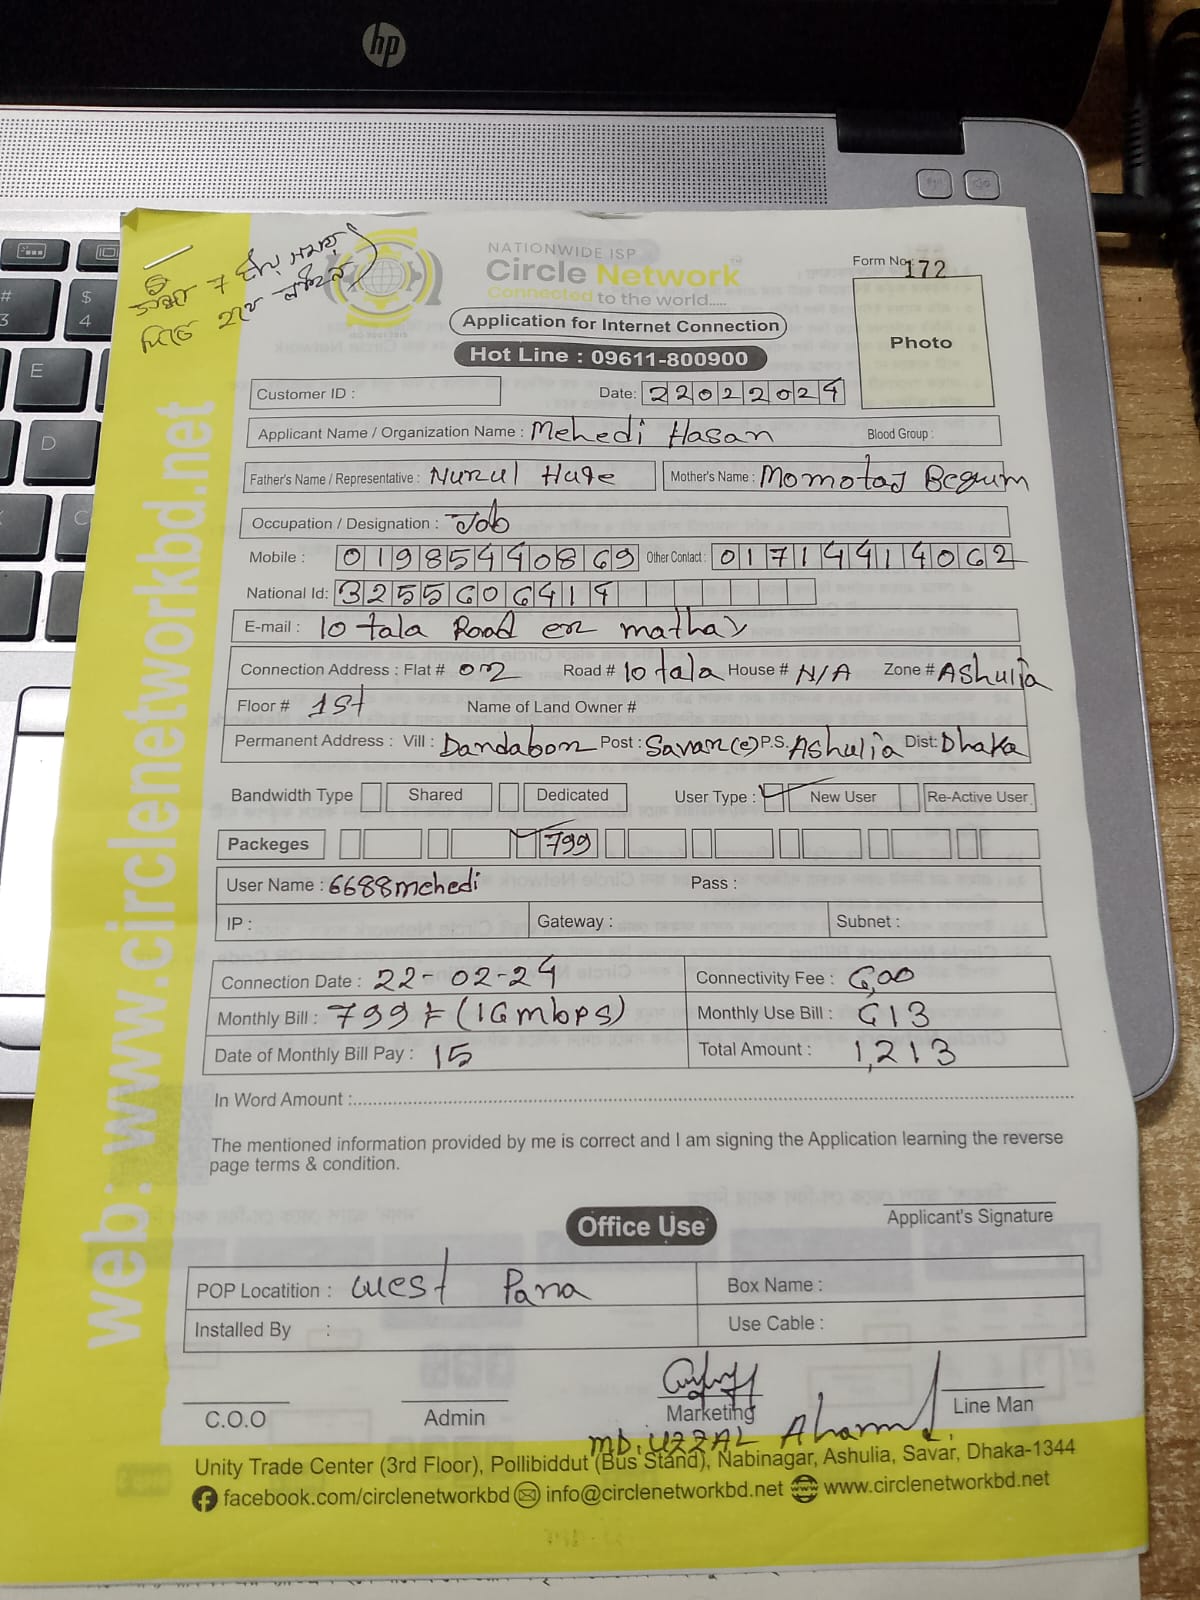 hp
# 3
$ 4
E
D
C
৭
NATIONWIDE ISP
Circle Network
Connected to the world.....
Application for Internet Connection
Hot Line : 09611-800900
Form No : 172
Photo
web: www.circlenetworkbd.net
Customer ID :
Date: 22022024
Applicant Name / Organization Name : Mehedi Hasan Blood Group :
Father's Name / Representative : Nurul Huqe Mother's Name : Momotaj Begum
Occupation / Designation : Job
Mobile : 01985440869 Other Contact : 01714414062
National Id: 3255606414
E-mail : 10 tala Road er mathay
Connection Address : Flat # Road # 10 tala House # N/A Zone # Ashulia
Floor # 1st Name of Land Owner #
Permanent Address : Vill : Dandabor Post : Savar (c) P.S. Ashulia Dist: Dhaka
Bandwidth Type Shared Dedicated User Type : New User Re-Active User
Packeges 799
User Name : 6688mehedi Pass :
IP : Gateway : Subnet :
Connection Date : 22-02-24 Connectivity Fee : 6,00
Monthly Bill : 799 ৳ (16mbps) Monthly Use Bill : 613
Date of Monthly Bill Pay : 15 Total Amount : 1,213
In Word Amount :
The mentioned information provided by me is correct and I am signing the Application learning the reverse
page terms & condition.
Applicant's Signature
Office Use
POP Locatition : West Para Box Name :
Installed By : Use Cable :
C.O.O Admin Marketing Line Man
MD. UZZAL Ahamed
Unity Trade Center (3rd Floor), Pollibiddut (Bus Stand), Nabinagar, Ashulia, Savar, Dhaka-1344
facebook.com/circlenetworkbd info@circlenetworkbd.net www.circlenetworkbd.net